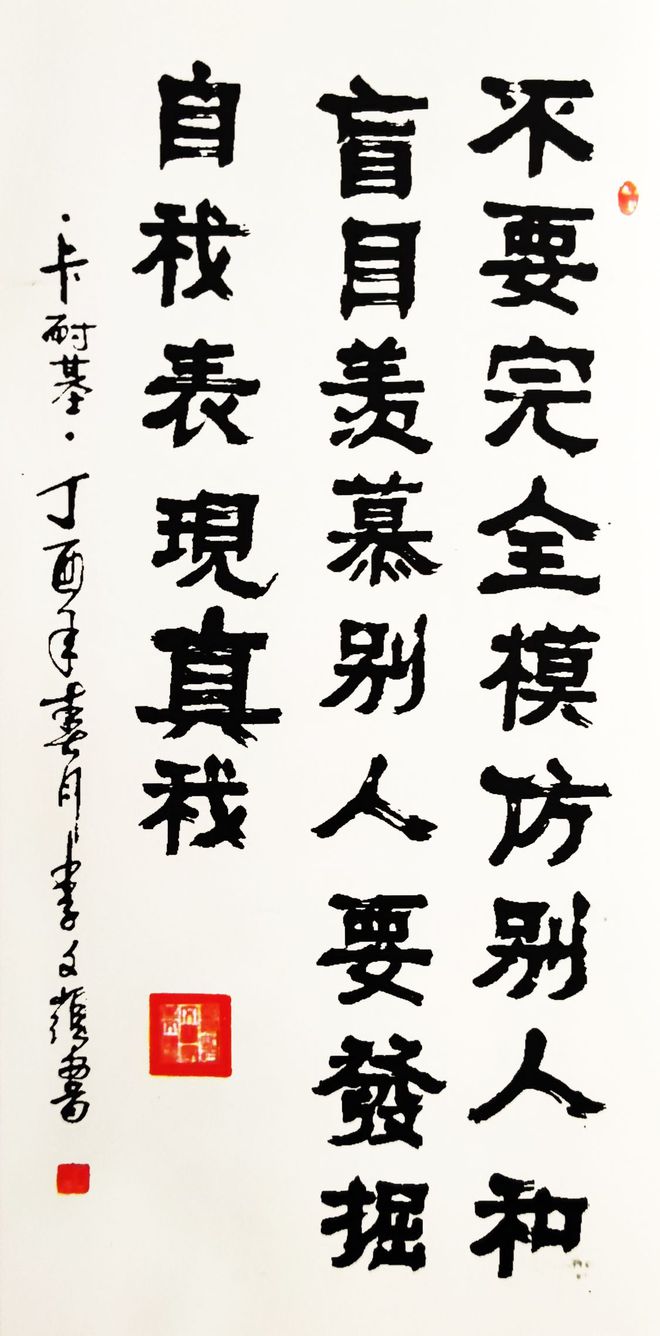 不要完全模仿别人和
盲目羡慕别人要發掘
自我表現真我
·卡耐基·丁酉年春月李文獚書